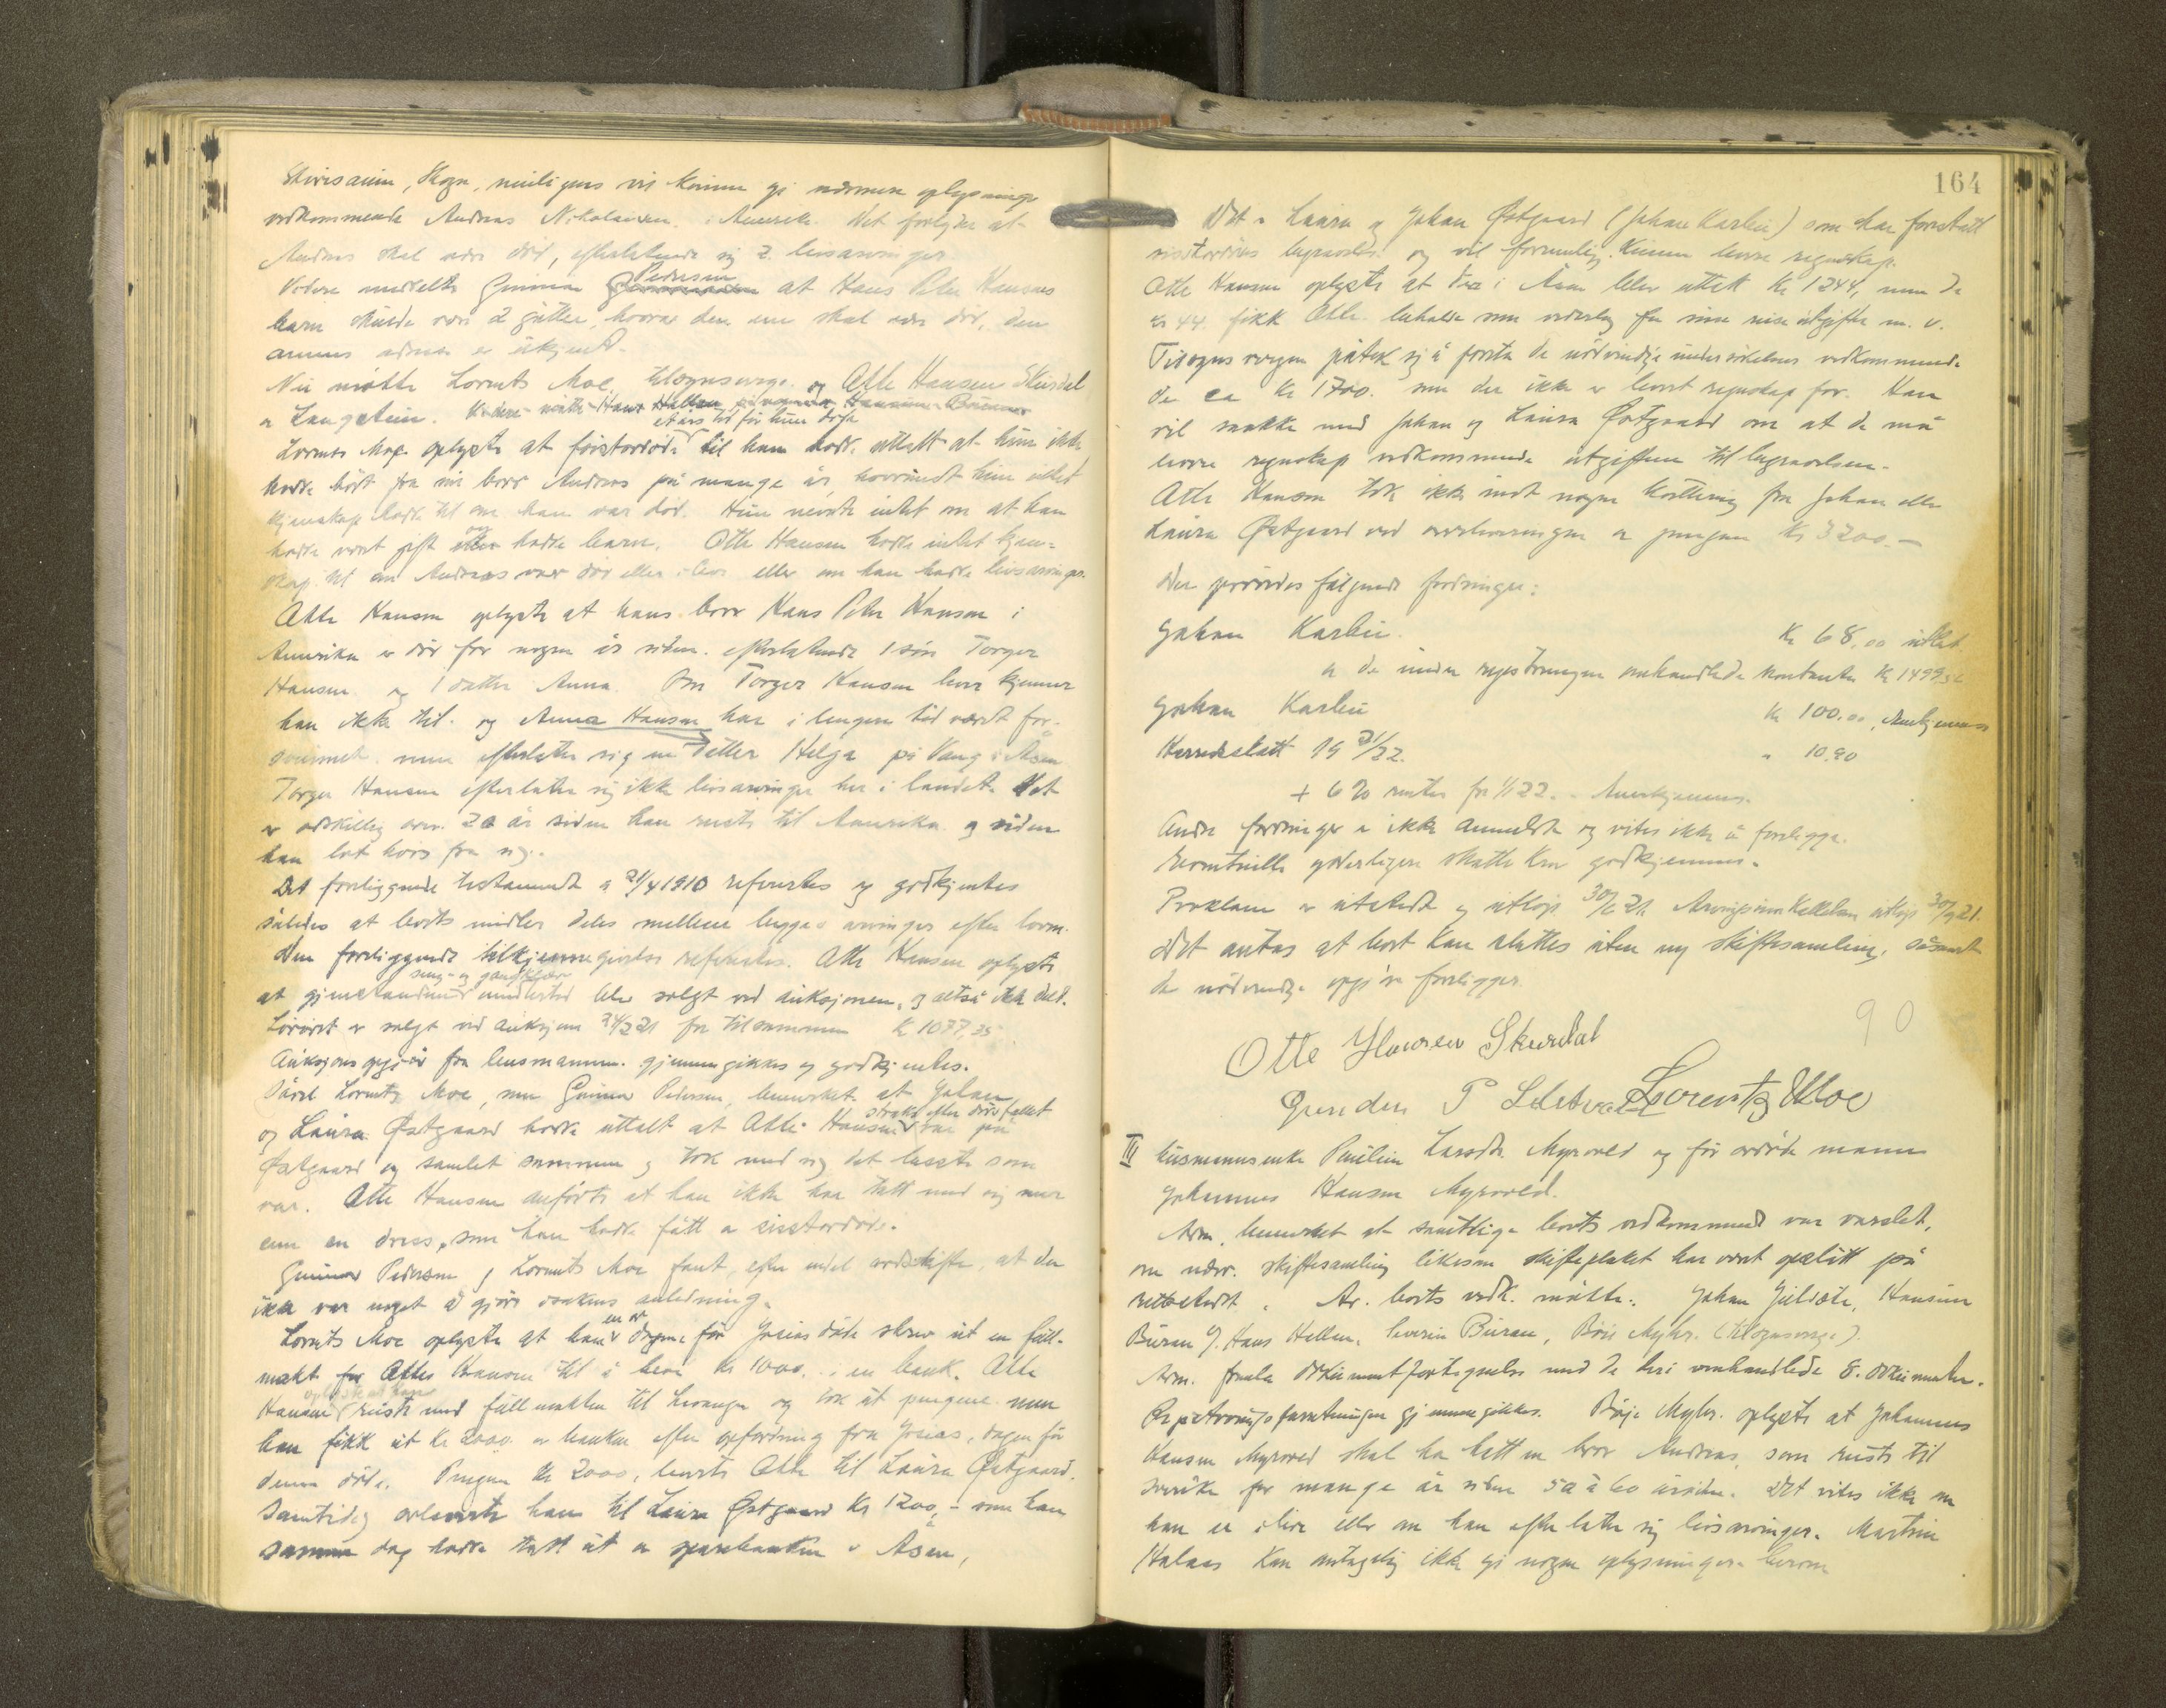 Skogn, muligens vil kunne gi nærmere oplysninger
vedkommende Andreas Nikolaisen i Amerika. Det forlyder at
Andreas skal være død, efterlatende sig 2 livsarvinger.
Videre meddelte Gunnar Pedersen at Hans Peter Hansens
barn skulde være 2 gutter, hvorav den ene skal være død, den
annens adresse er ukjent.
Nu møtte Lorents Moe, tilsynsverge og Otte Hansen Skurdal
av Langstein. Videre møtte Hans Hallem
et års tid før hun døde
Lorents Moe oplyste at førstavdøde til ham hadde uttalt at hun ikke
hadde hørt fra sin bror Andreas på mange år, hvorvidt hun
kjenskap hadde til om han var død. Hun nevnte intet om at han
hadde vært gift og hadde barn. Otte Hansen hadde intet kjen-
skap til om Andreas var død eller i live eller om han hadde livsarvinger.
Otte Hansen oplyste at hans bror Hans Peter Hansen i
Amerika er død for nogen år siden, efterlatende 1 søn Torger
Hansen og 1 datter Anna. Om Torger Hansen lever kjenner
han ikke til og Anna Hansen har i lengere tid været for-
svunnet, men efterlater sig en datter Helga på Vang i Åsen
Torger Hansen efterlater sig ikke livsarvinger her i landet. Det
er adskillig over 20 år siden han reiste til Amerika og siden
han lot høre fra sig.
Det foreliggende testamente av 21/4 1910 refertes og godkjentes
således at boets midler deles mellem begges arvinger efter loven.
Den foreliggende tilkjennegivelse refertes. Otte Hansen oplyste
seng- og gangklær
at gjenstandene blev solgt ved auksjonen, og altså ikke delt.
Løsøret er solgt ved auksjon 24/2 21 for tilsammen kr. 1077,35
Auksjonsopgjør fra lensmannen gjennemgikkes og godkjentes.
Såvel Lorents Moe, som Gunnar Pedersen, bemerket at Johan
straks efter dødsfallet
og Laura Østgaard hadde uttalt at Otte Hansen var på
Østgaard og samlet sammen og tok med sig det beste som
var. Otte Hansen anførte at han ikke har tatt med sig mer
enn en dress, som han hadde fått av sistavdøde.
Gunnar Pedersen og Lorents Moe fant, efter endel ordskifte, at der
ikke var noget å gjøre i sakens anledning.
en av
Lorents Moe oplyste at han dagene før Josias døde skrev ut en full-
makt for Otte Hansen til å heve kr. 1000,- i en bank. Otte
oplyste at han
Hansen reiste med fullmakten til Levanger og tok ut pengene men
han fikk ut kr. 2000,- av banken efter opfordring fra Josias, dagen før
denne døde. Pengene kr. 2000,- leverte Otte til Laura Østgaard.
Samtidig overleverte han til Laura Østgaard kr. 1200,- som han
samme dag hadde tatt ut av sparebanken i Åsen,
164
Det er Laura og Johan Østgaard (Johan Karlsen) som har forestått
sistavdødes begravelse og vil formentlig kunne levere regnskap.
Otte Hansen oplyste at der i Åsen blev uttatt kr. 1244, men de
kr. 44 fikk Otte beholde som vederlag for sine reiseutgifter m. v.
Tilsynsvergen påtok sig å foreta de nødvendige undersøkelser vedkommende
de ca kr. 1700,- som der ikke er levert regnskap for. Han
vil snakke med Johan og Laura Østgaard om at de må
levere regnskap vedkommende utgiftene til begravelsen.
Otte Hansen tok ikke imot nogen kvittering fra Johan eller
Laura Østgaard ved overleveringen av pengene kr 3200.-
Der prøvedes følgende fordringer:
Johan Karlsen. kr 68.00 utlagt
av de under registreringen omhandlede kontanter kr 1499
Johan Karlsen kr 100.00, Anerkjennes
Herredsskatt 19 21/22. " 10.90
+ 6% renter fra 1/1 22. - Anerkjennes.
Andre fordringer er ikke anmeldt og vites ikke å foreligge.
Eventuelle ytterligere skattekrav godkjennes.
Proklama er utstedt og utløp 30/6 21. Arvingsinnkallelsen utløp 30/9 21.
Det antas at boet kan sluttes uten ny skiftesamling, såsnart
de nødvendige opgjør foreligger.
90
Otte Hansen Skurdal
Gunder P Lorentz Moe
III Husmannsenke Pauline Larsdtr. Myrvold og før avdøde mann
Johannes Hansen Myrvold.
Adm. bemerket at samtlige boets vedkommende var varslet,
om nærv. skiftesamling likesom skifteplakat har vært opslått på
rettstedet. Av boets vedk. møtte: Johan Hansine
Buran v/ Hans Hellem, Severin Buran, Børe Myhr. (tilsynsverge).
Adm. fremla dokumentfortegnelse med de heri omhandlede 8 dokumenter.
Registreringsforretningen gjennemgikkes. Børe Myhr. oplyste at Johannes
Hansen Myrvold skal ha hatt en bror Andreas, som reiste til
Sverike for mange år siden 50 à 60 år siden. Det vites ikke om
han er i live eller om han efterlater sig livsarvinger. Martin
Halsaas kan antagelig ikke gi nogen oplysninger herom